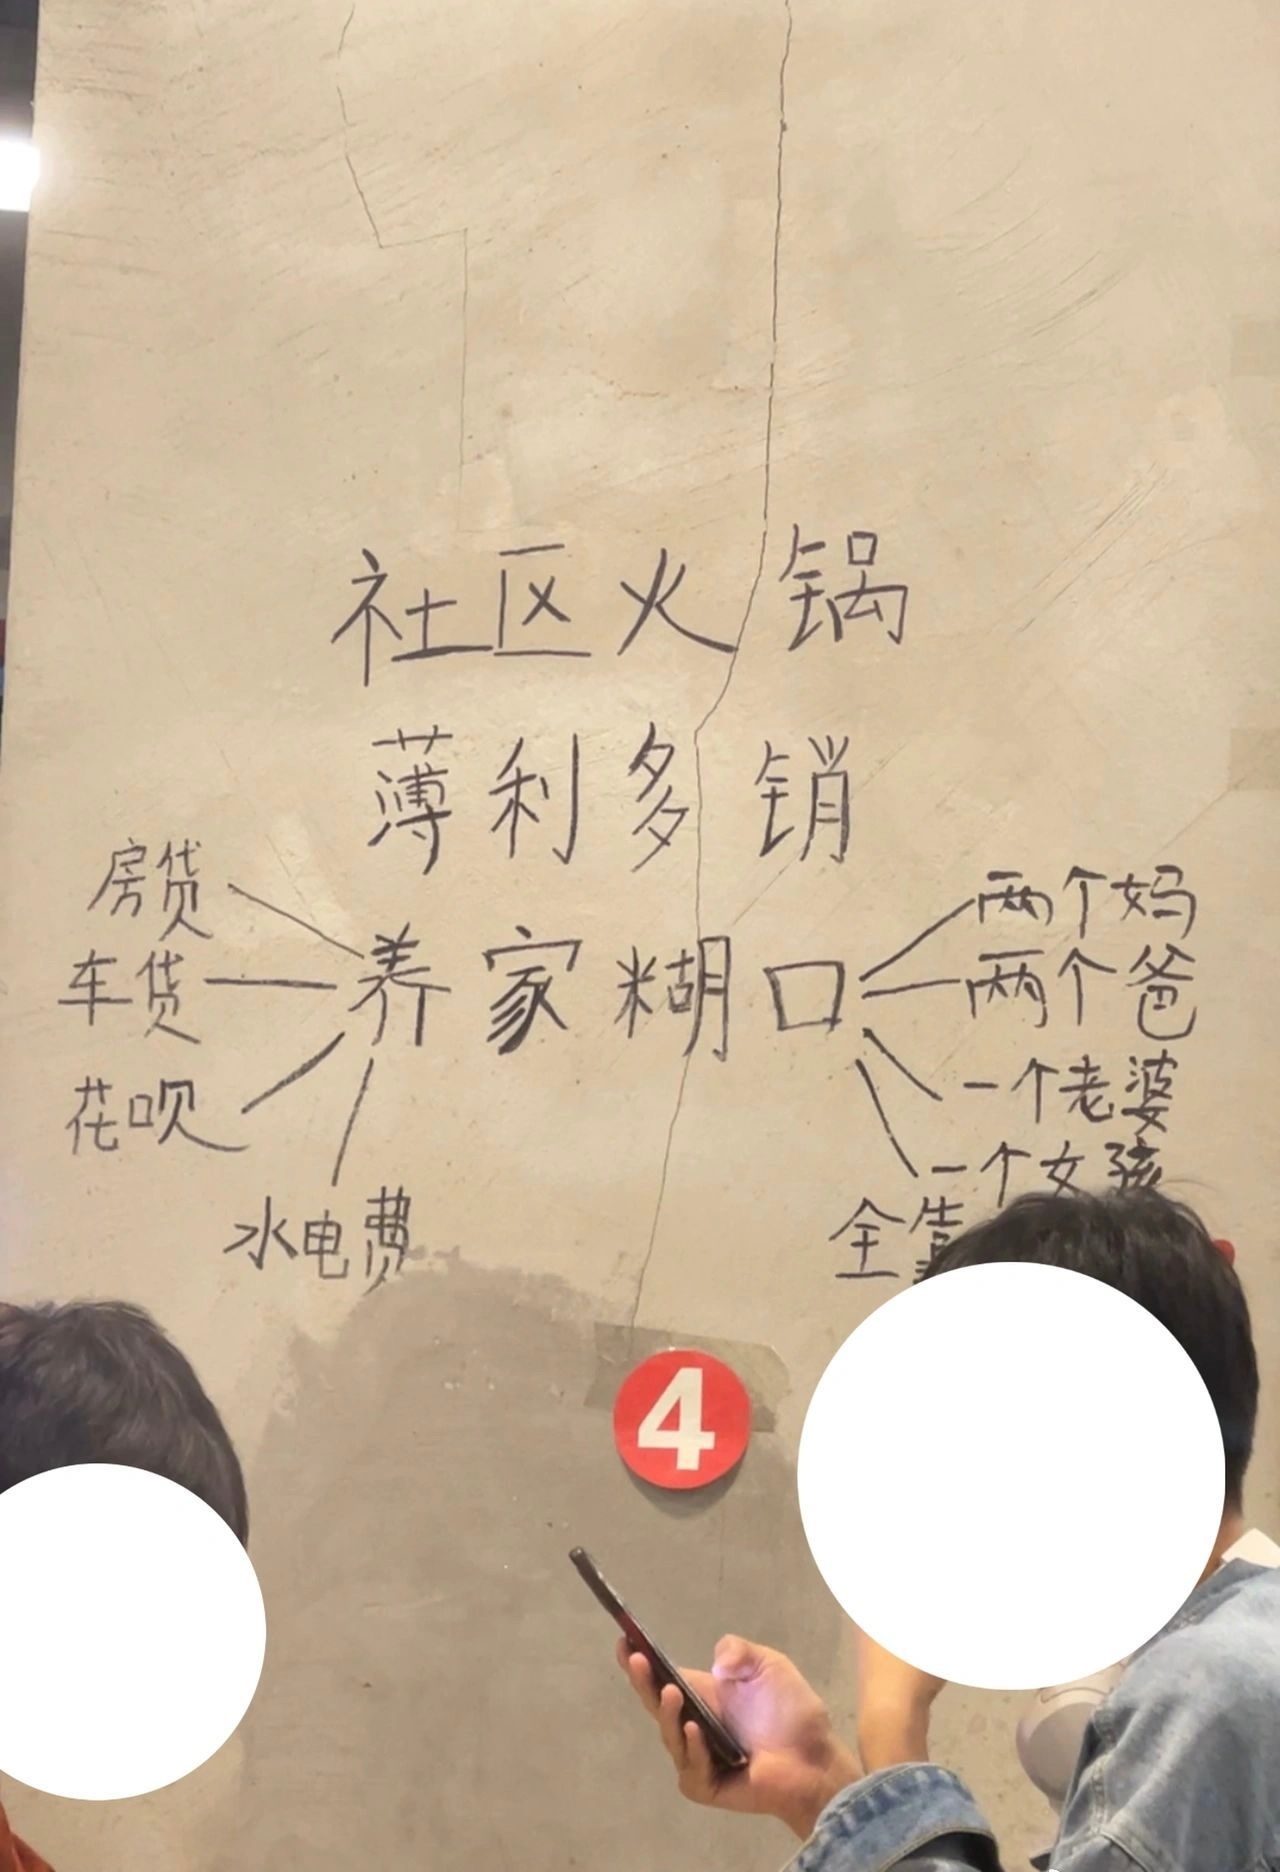 社区火锅
薄利多销
养家糊口
房贷
车贷
花呗
水电费
两个妈
两个爸
一个老婆
一个女孩
全靠
4